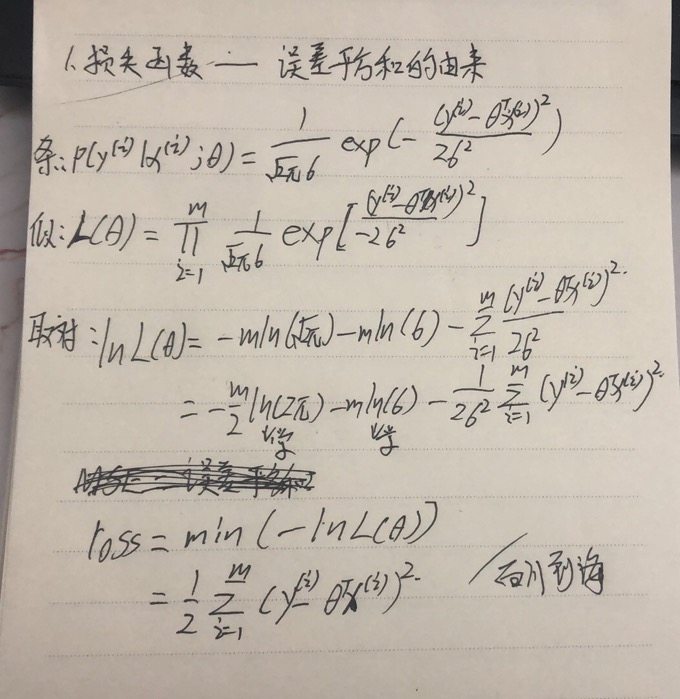 1. 损失函数 —— 误差平方和的由来
条: P(y^(i)|x^(i);θ) = 1/(√2π σ) exp(-(y^(i)-θᵀx^(i))²/2σ²)
似: L(θ) = ∏_{i=1}^{m} 1/(√2π σ) exp[(y^(i)-θᵀx^(i))²/-2σ²]
取对: ln L(θ) = -m ln(√2π) - m ln(σ) - ∑_{i=1}^{m} (y^(i)-θᵀx^(i))²/2σ²
= -m/2 ln(2π) - m ln(σ) - 1/2σ² ∑_{i=1}^{m} (y^(i)-θᵀx^(i))²
loss = min(-ln L(θ))
= 1/2 ∑_{i=1}^{m} (y^(i)-θᵀx^(i))²
百川到海